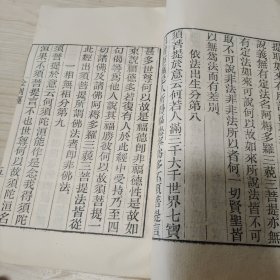 提耶如
說義無有定法名阿耨多羅三藐三菩提亦無
有定法如來可說何以故如來所說法皆不可
取不可說非法非非法所以者何一切賢聖皆
以無為法而有差別
依法出生分第八
須菩提於意云何若人滿三千大千世界七寶
多不須菩提言
甚多世尊何以故是福德即非福德性是故如
來說福德多若復有人於此經中受持乃至四
句偈等為他人說其福勝彼何以故須菩提一
切諸佛及諸佛阿耨多羅三藐三菩提法皆從
此經出須菩提所謂佛法者即非佛法
一相無相分第九
須菩提於意云何須陀洹能作是念我得須陀
洹果不須菩提言不也世尊何以故須陀洹名